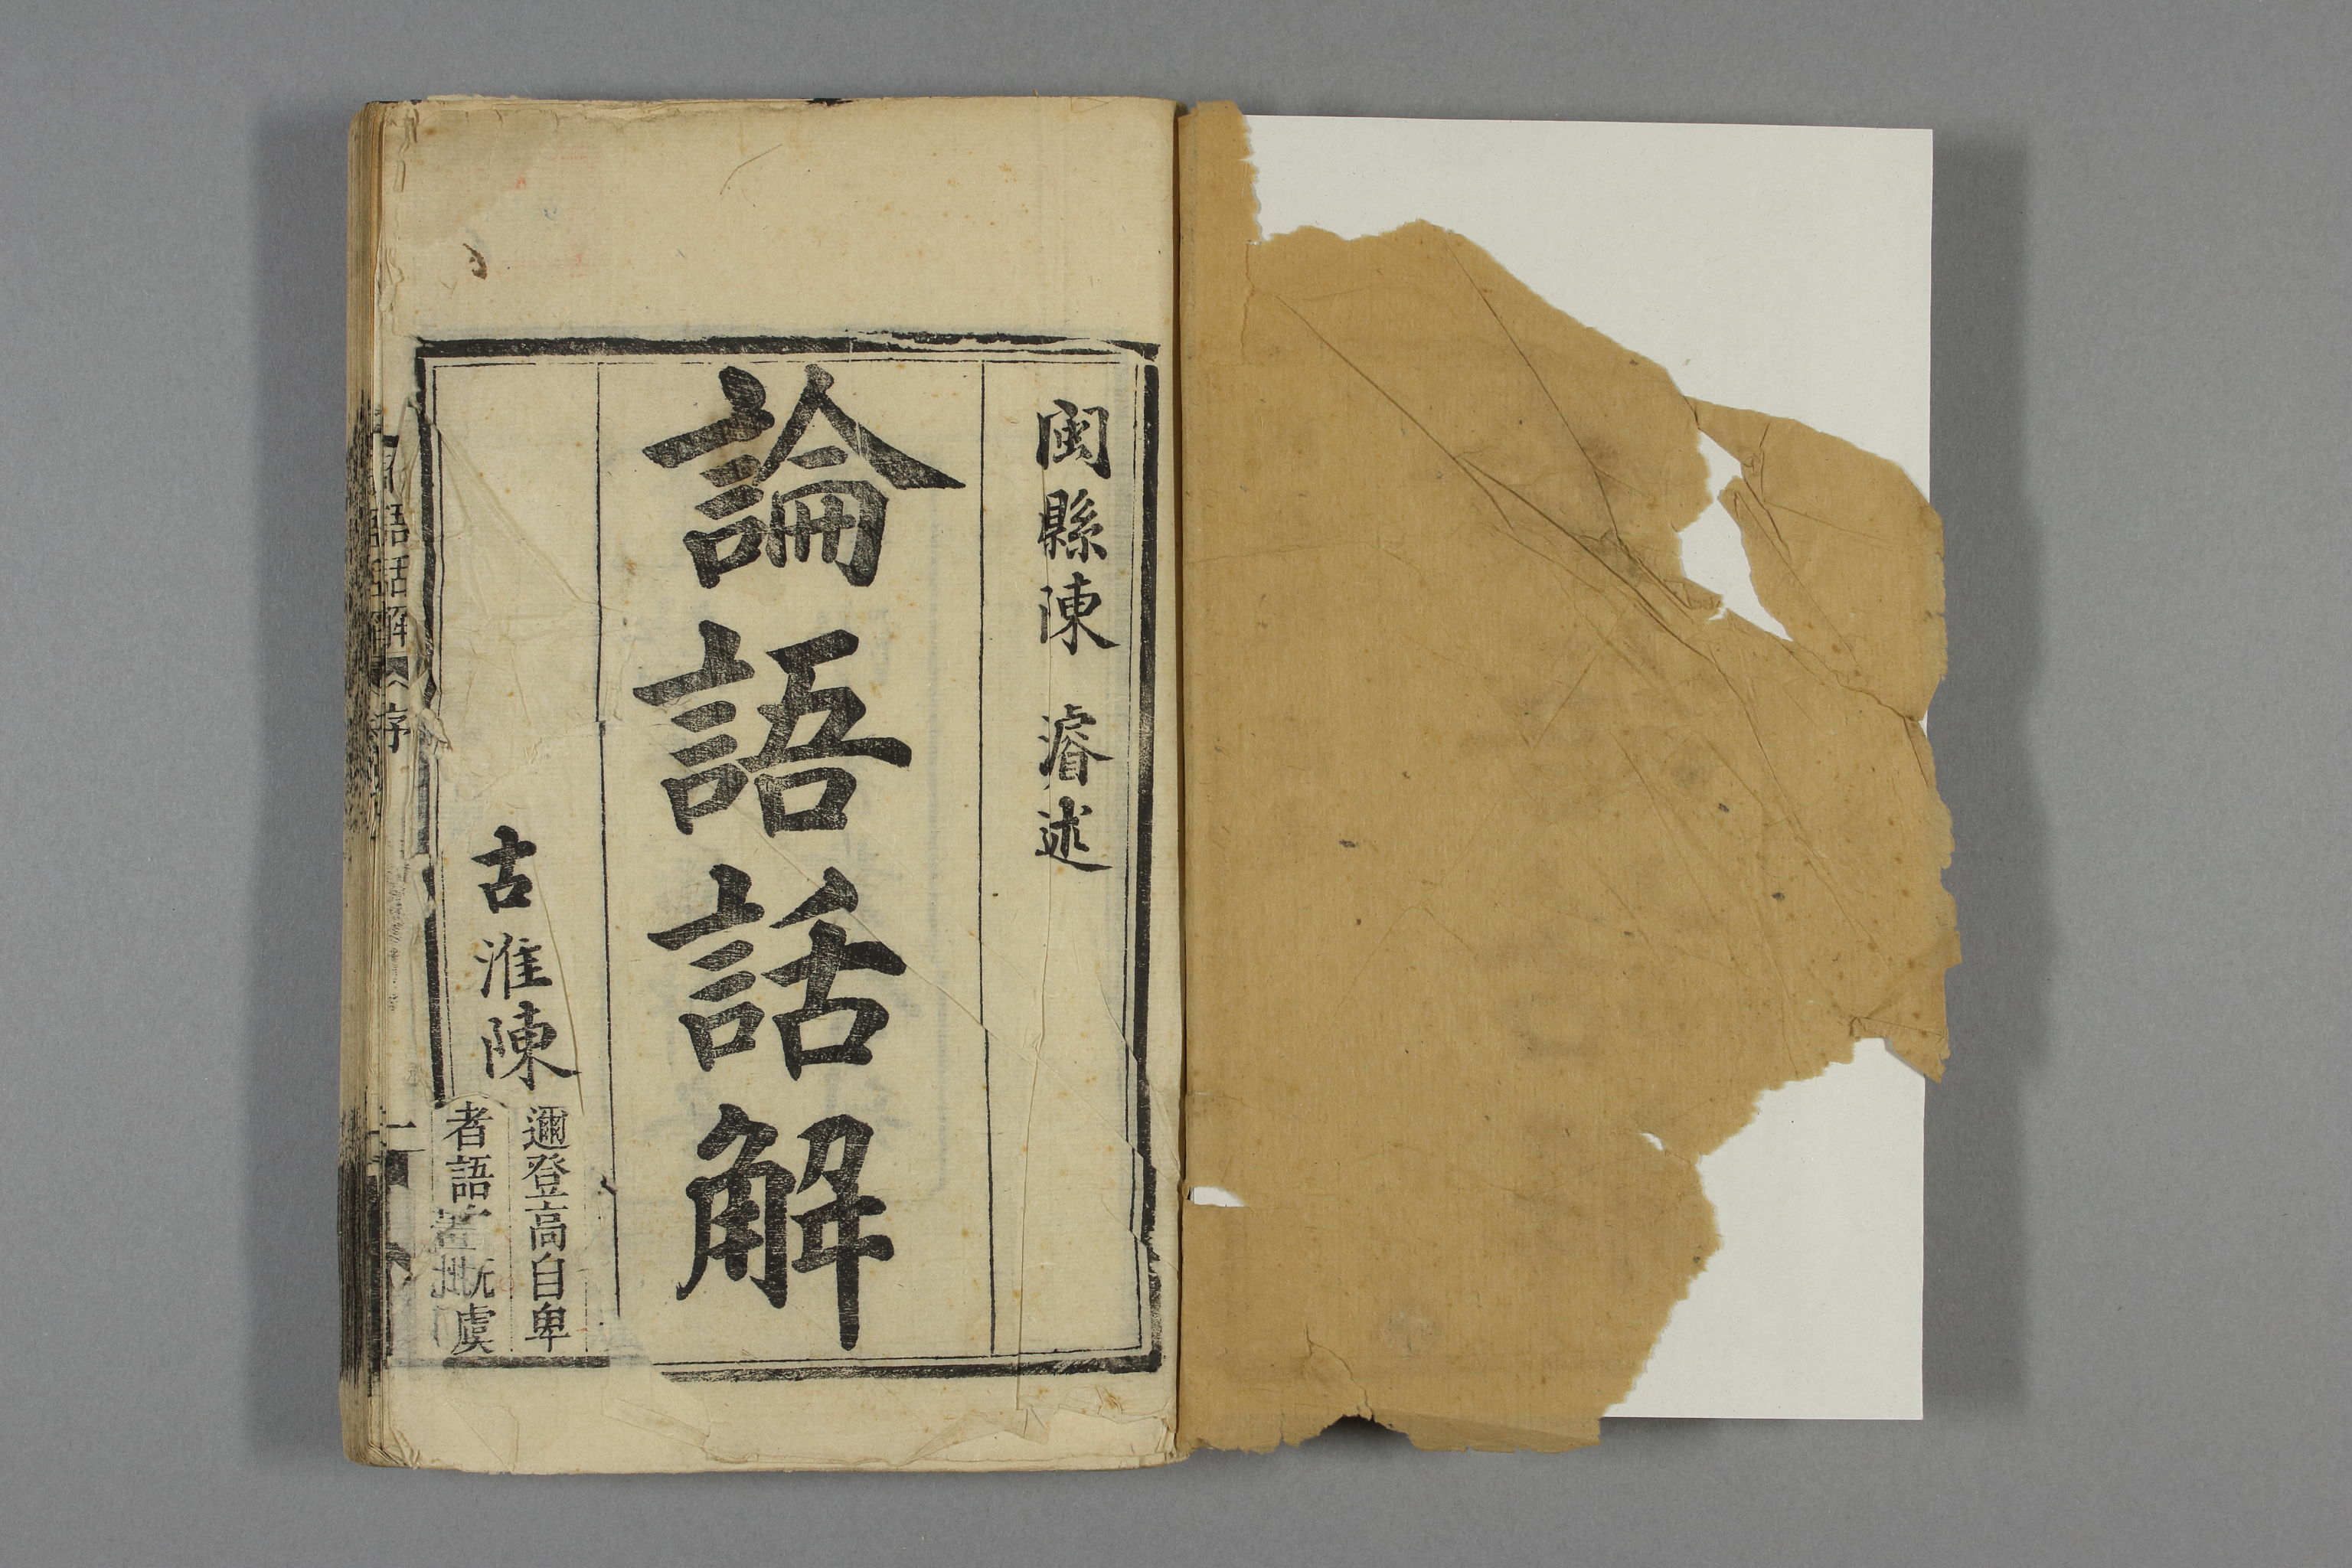 閩縣陳濬述
論語話解
古淮陳
邇登高自卑
者語
虞
語話解
序